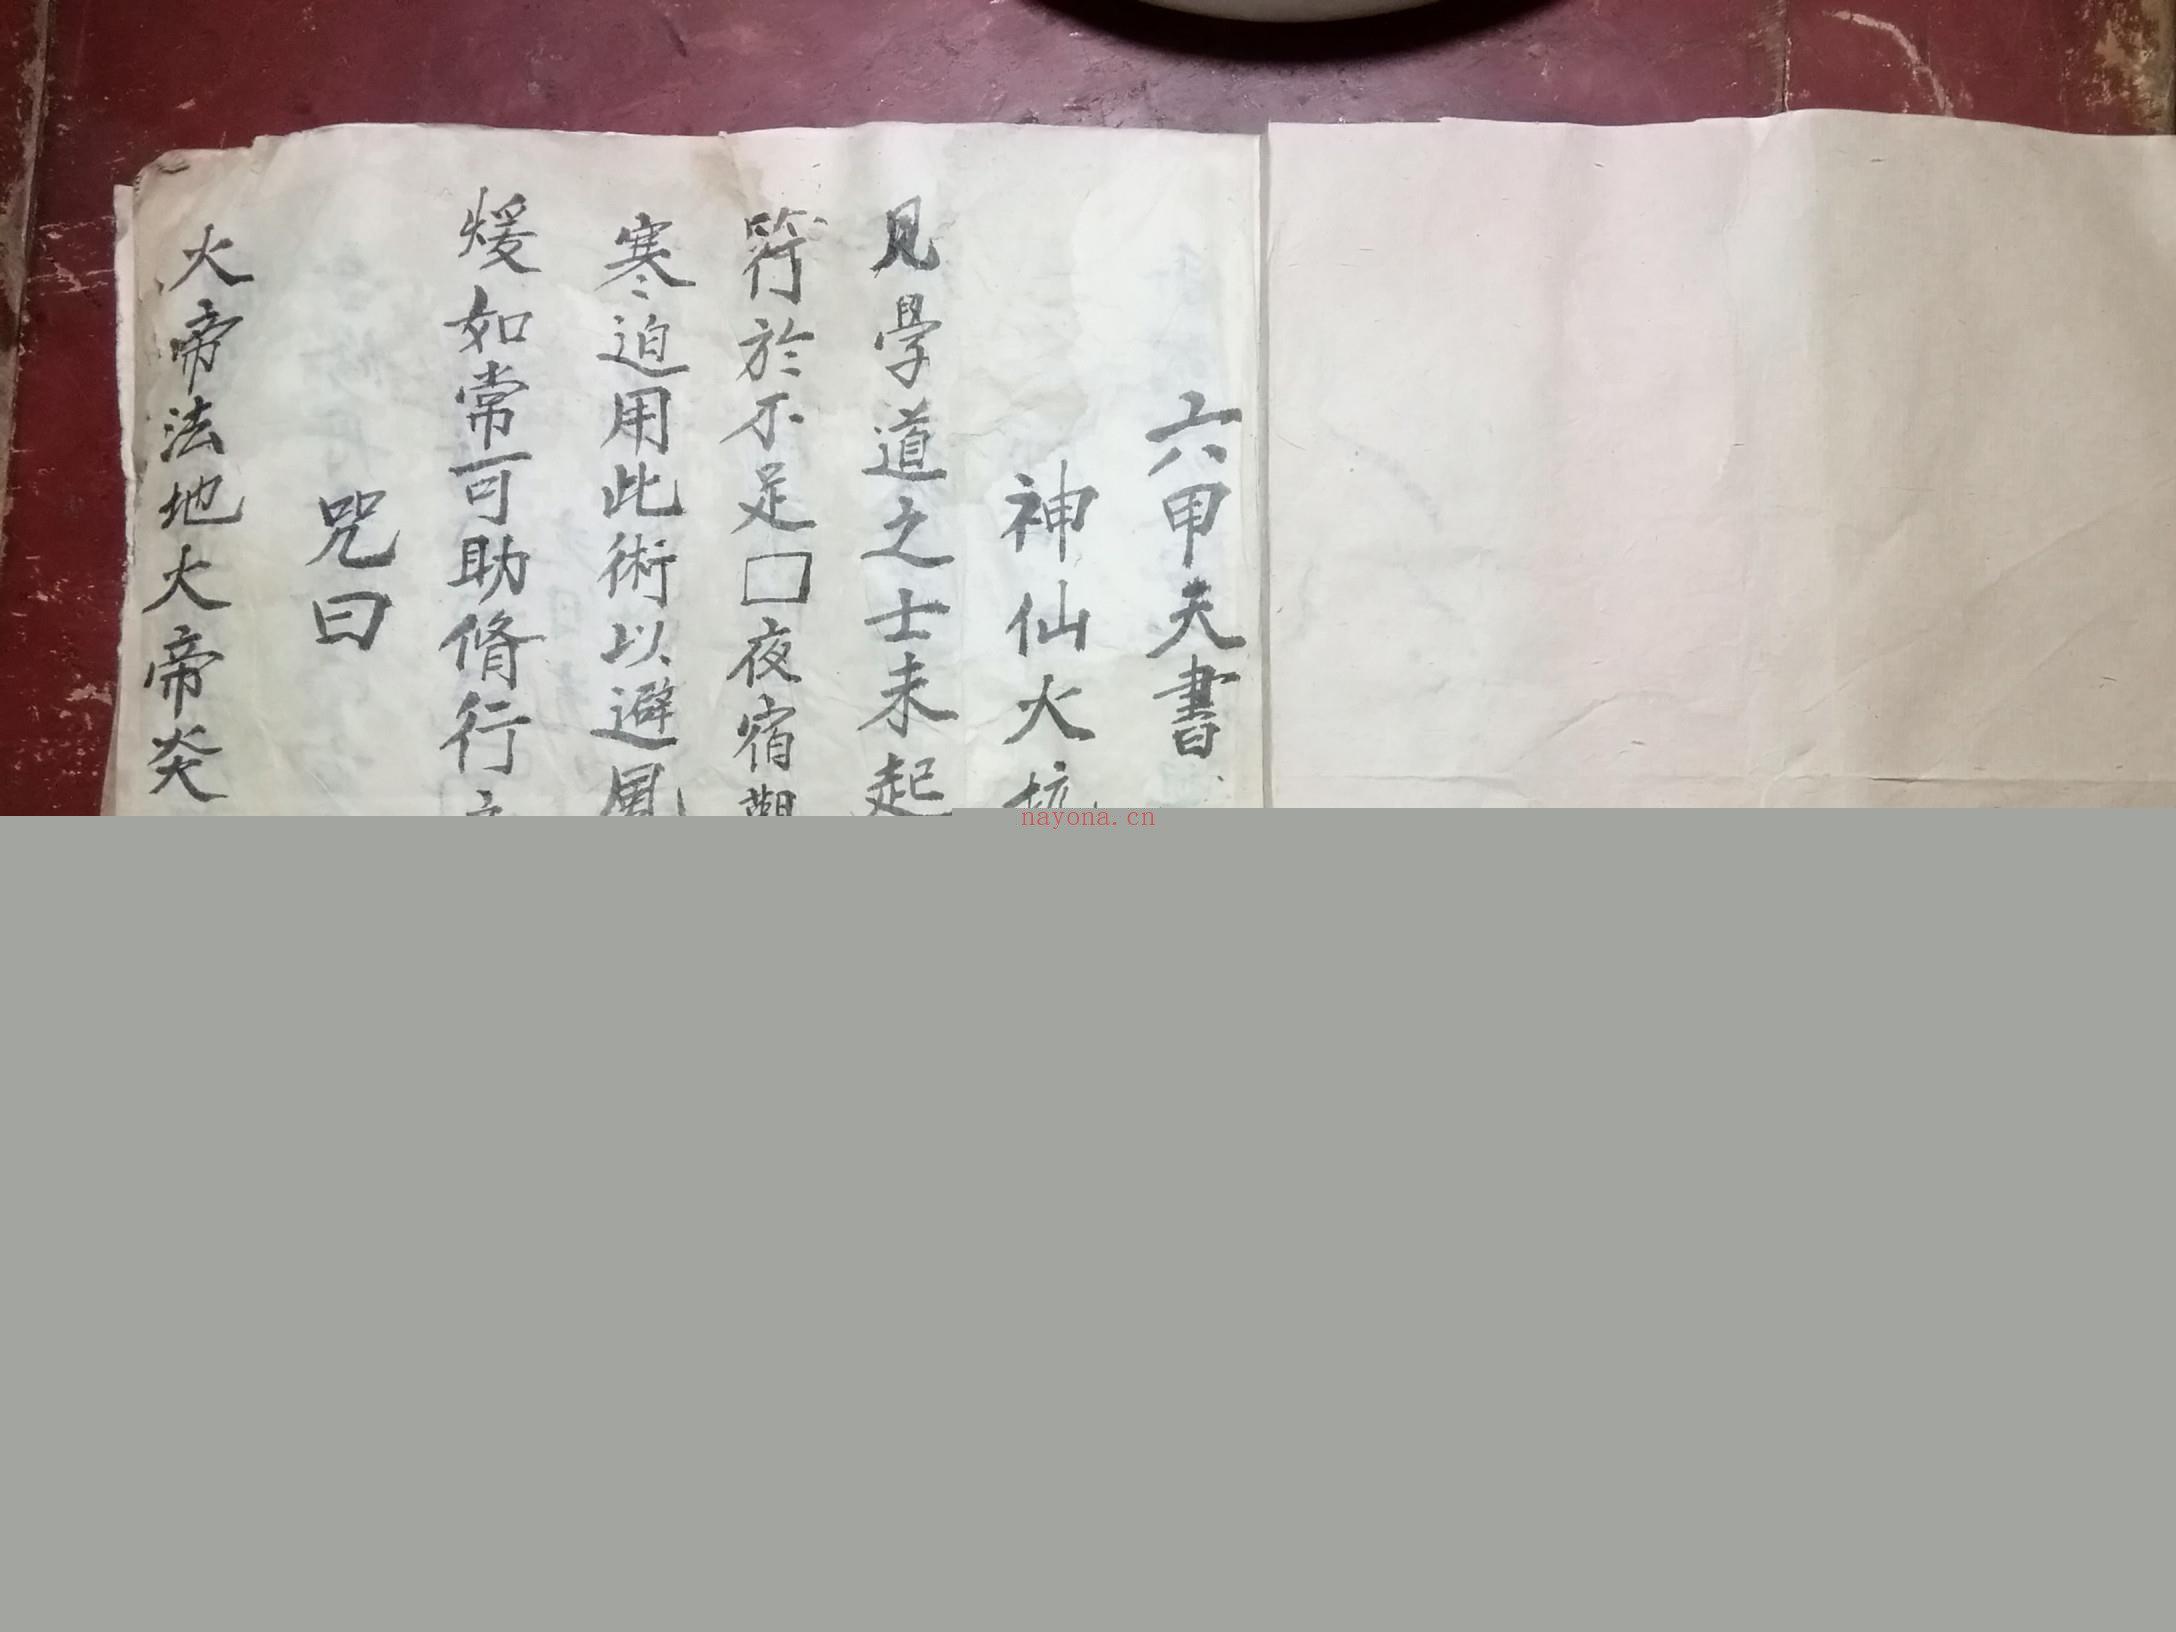 六甲天書
神仙火
見學道之士未起
符於不足□夜宿
寒迫用此術以避風
煖如常可助脩行
咒曰
火帝法地大帝炎
nayona.cn